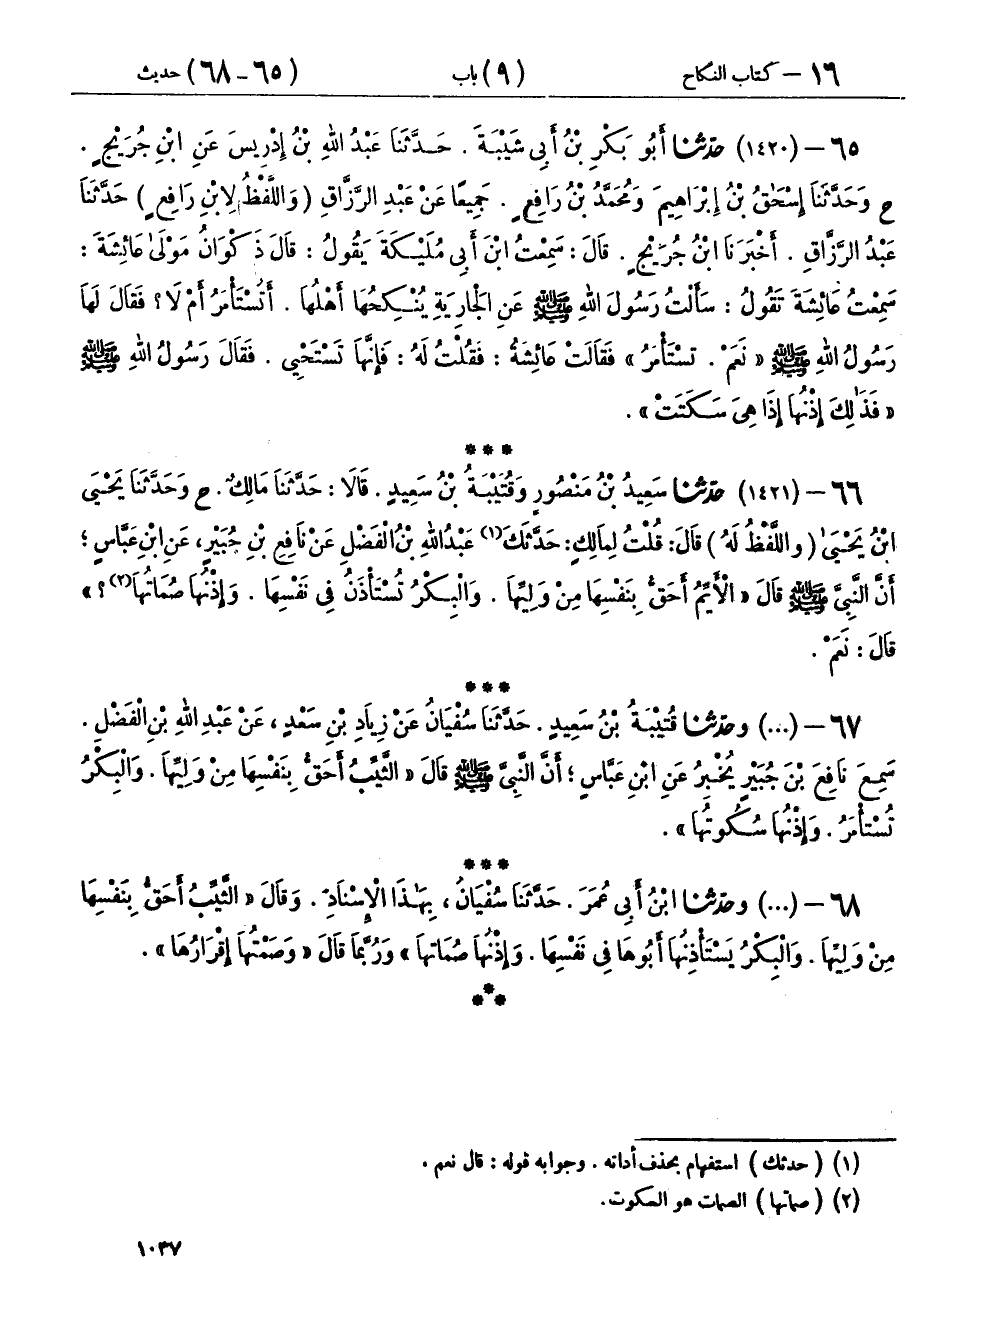 ١٦ – كتاب النكاح (٩) باب (٦٥-٦٨) حديث
٦٥ – (١٤٢٠) حَدَّثَنَا أَبُو بَكْرِ بْنُ أَبِي شَيْبَةَ . حَدَّثَنَا عَبْدُ اللهِ بْنُ إِدْرِيسَ عَنِ ابْنِ جُرَيْجٍ .
ح وَحَدَّثَنَا إِسْحَٰقُ بْنُ إِبْرَاهِيمَ وَمُحَمَّدُ بْنُ رَافِعٍ . جَمِيعًا عَنْ عَبْدِ الرَّزَّاقِ (وَاللَّفْظُ لِابْنِ رَافِعٍ) حَدَّثَنَا
عَبْدُ الرَّزَّاقِ . أَخْبَرَنَا ابْنُ جُرَيْجٍ . قَالَ : سَمِعْتُ ابْنَ أَبِي مُلَيْكَةَ يَقُولُ : قَالَ ذَكْوَانُ مَوْلَىٰ عَائِشَةَ :
سَمِعْتُ عَائِشَةَ تَقُولُ : سَأَلْتُ رَسُولَ اللهِ ﷺ عَنِ الْجَارِيَةِ يُنْكِحُهَا أَهْلُهَا . أَتُسْتَأْمَرُ أَمْ لَا ؟ فَقَالَ لَهَا
رَسُولُ اللهِ ﷺ « نَعَمْ . تُسْتَأْمَرُ » فَقَالَتْ عَائِشَةُ : فَقُلْتُ لَهُ : فَإِنَّهَا تَسْتَحْيِي . فَقَالَ رَسُولُ اللهِ ﷺ
« فَذَٰلِكَ إِذْنُهَا إِذَا هِيَ سَكَتَتْ » .
***
٦٦ – (١٤٢١) حَدَّثَنَا سَعِيدُ بْنُ مَنْصُورٍ وَقُتَيْبَةُ بْنُ سَعِيدٍ . قَالَا : حَدَّثَنَا مَالِكٌ . ح وَحَدَّثَنَا يَحْيَىٰ
ابْنُ يَحْيَىٰ (وَاللَّفْظُ لَهُ) قَالَ : قُلْتُ لِمَالِكٍ : حَدَّثَكَ(١) عَبْدُ اللهِ بْنُ الْفَضْلِ عَنْ نَافِعِ بْنِ جُبَيْرٍ ، عَنِ ابْنِ عَبَّاسٍ ؛
أَنَّ النَّبِيَّ ﷺ قَالَ « الْأَيِّمُ أَحَقُّ بِنَفْسِهَا مِنْ وَلِيِّهَا . وَالْبِكْرُ تُسْتَأْذَنُ فِي نَفْسِهَا . وَإِذْنُهَا صُمَاتُهَا(٢) ؟ »
قَالَ : نَعَمْ .
***
٦٧ – (...) وحَدَّثَنَا قُتَيْبَةُ بْنُ سَعِيدٍ . حَدَّثَنَا سُفْيَانُ عَنْ زِيَادِ بْنِ سَعْدٍ ، عَنْ عَبْدِ اللهِ بْنِ الْفَضْلِ .
سَمِعَ نَافِعَ بْنَ جُبَيْرٍ يُخْبِرُ عَنِ ابْنِ عَبَّاسٍ ؛ أَنَّ النَّبِيَّ ﷺ قَالَ « الثَّيِّبُ أَحَقُّ بِنَفْسِهَا مِنْ وَلِيِّهَا . وَالْبِكْرُ
تُسْتَأْمَرُ . وَإِذْنُهَا سُكُوتُهَا » .
***
٦٨ – (...) وحَدَّثَنَا ابْنُ أَبِي عُمَرَ . حَدَّثَنَا سُفْيَانُ ، بِهَٰذَا الْإِسْنَادِ . وَقَالَ « الثَّيِّبُ أَحَقُّ بِنَفْسِهَا
مِنْ وَلِيِّهَا . وَالْبِكْرُ يَسْتَأْذِنُهَا أَبُوهَا فِي نَفْسِهَا . وَإِذْنُهَا صُمَاتُهَا » وَرُبَّمَا قَالَ « وَصَمْتُهَا إِقْرَارُهَا » .
***
(١) (حدثك) استفهام بحذف أداته . وجوابه قوله : قال نعم .
(٢) (صماتها) الصمات هو السكوت .
١٠٣٧